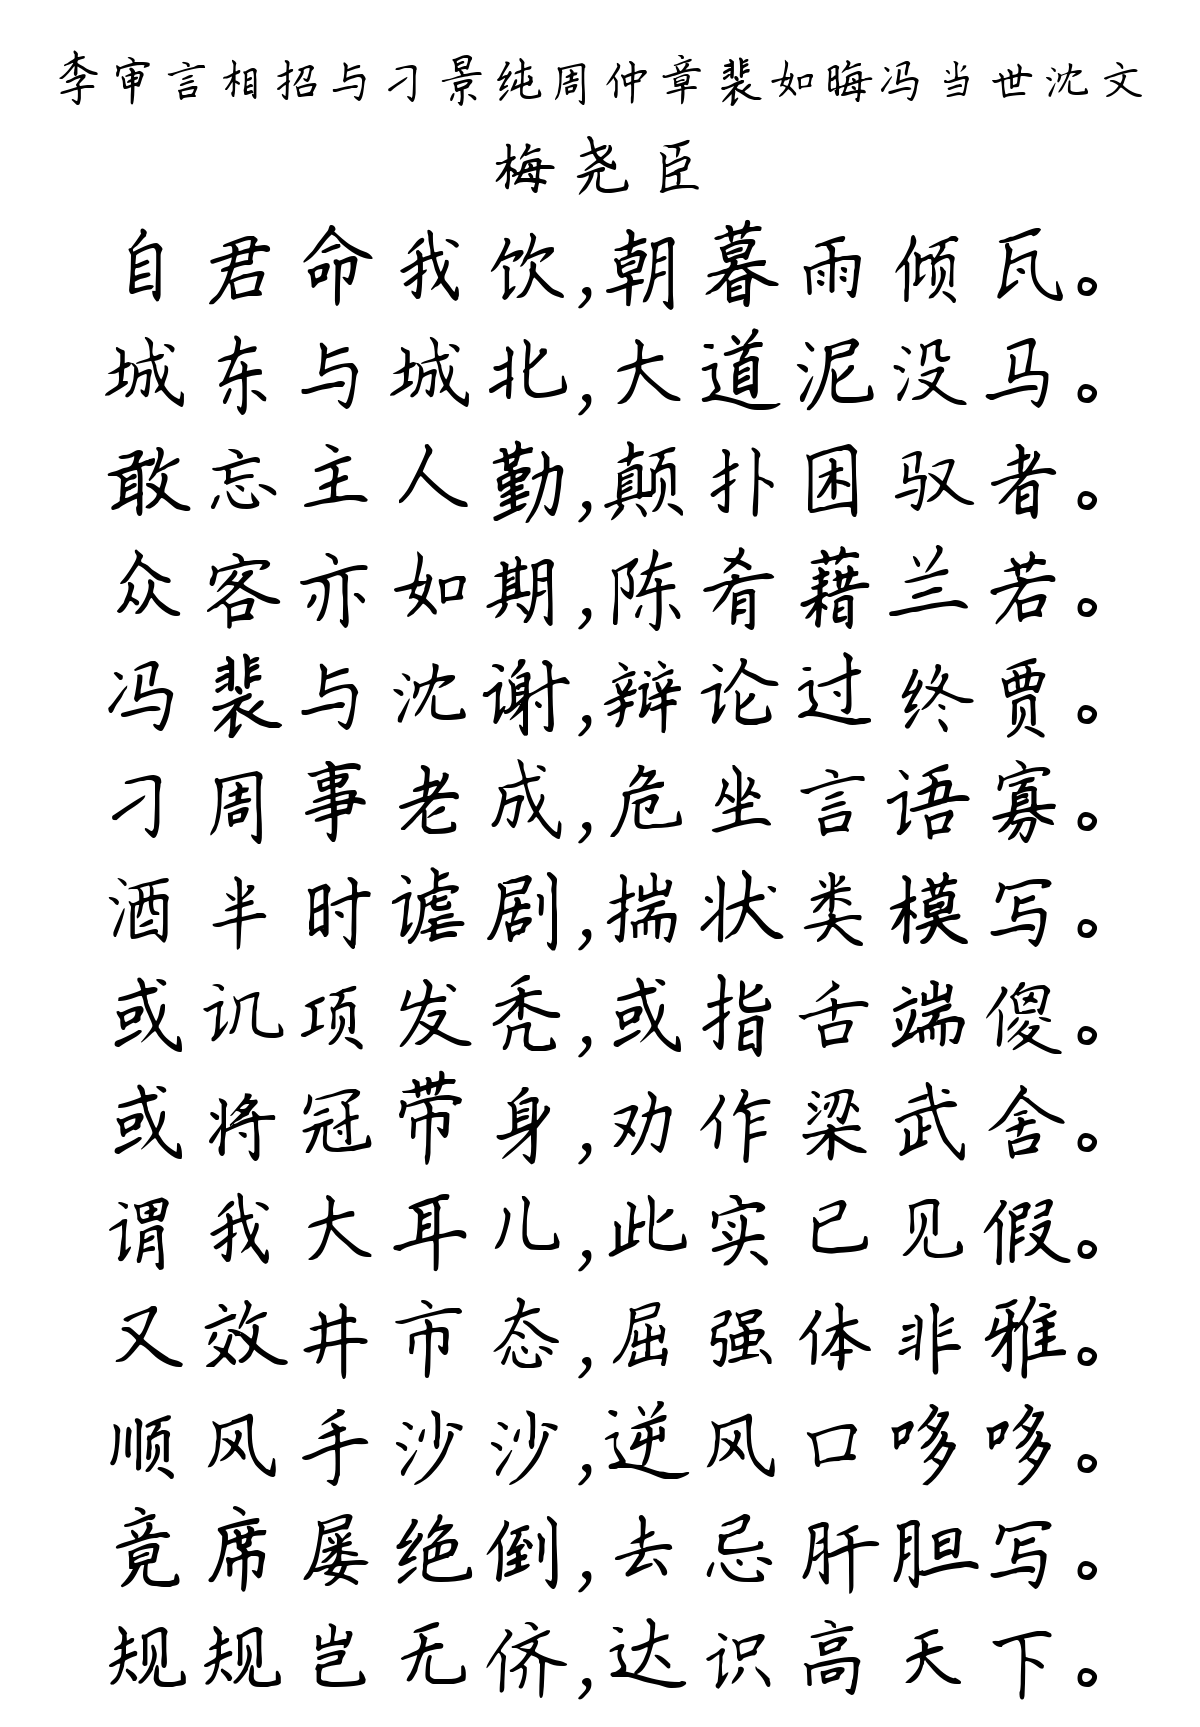 李审言相招与刁景纯周仲章裴如晦冯当世沈文
梅尧臣
自君命我饮,朝暮雨倾瓦。
城东与城北,大道泥没马。
敢忘主人勤,颠扑困驭者。
众客亦如期,陈肴藉兰若。
冯裴与沈谢,辩论过终贾。
刁周事老成,危坐言语寡。
酒半时谑剧,揣状类模写。
或讥项发秃,或指舌端傻。
或将冠带身,劝作梁武舍。
谓我大耳儿,此实已见假。
又效井市态,屈强体非雅。
顺风手沙沙,逆风口哆哆。
竟席屡绝倒,去忌肝胆写。
规规岂无侪,达识高天下。